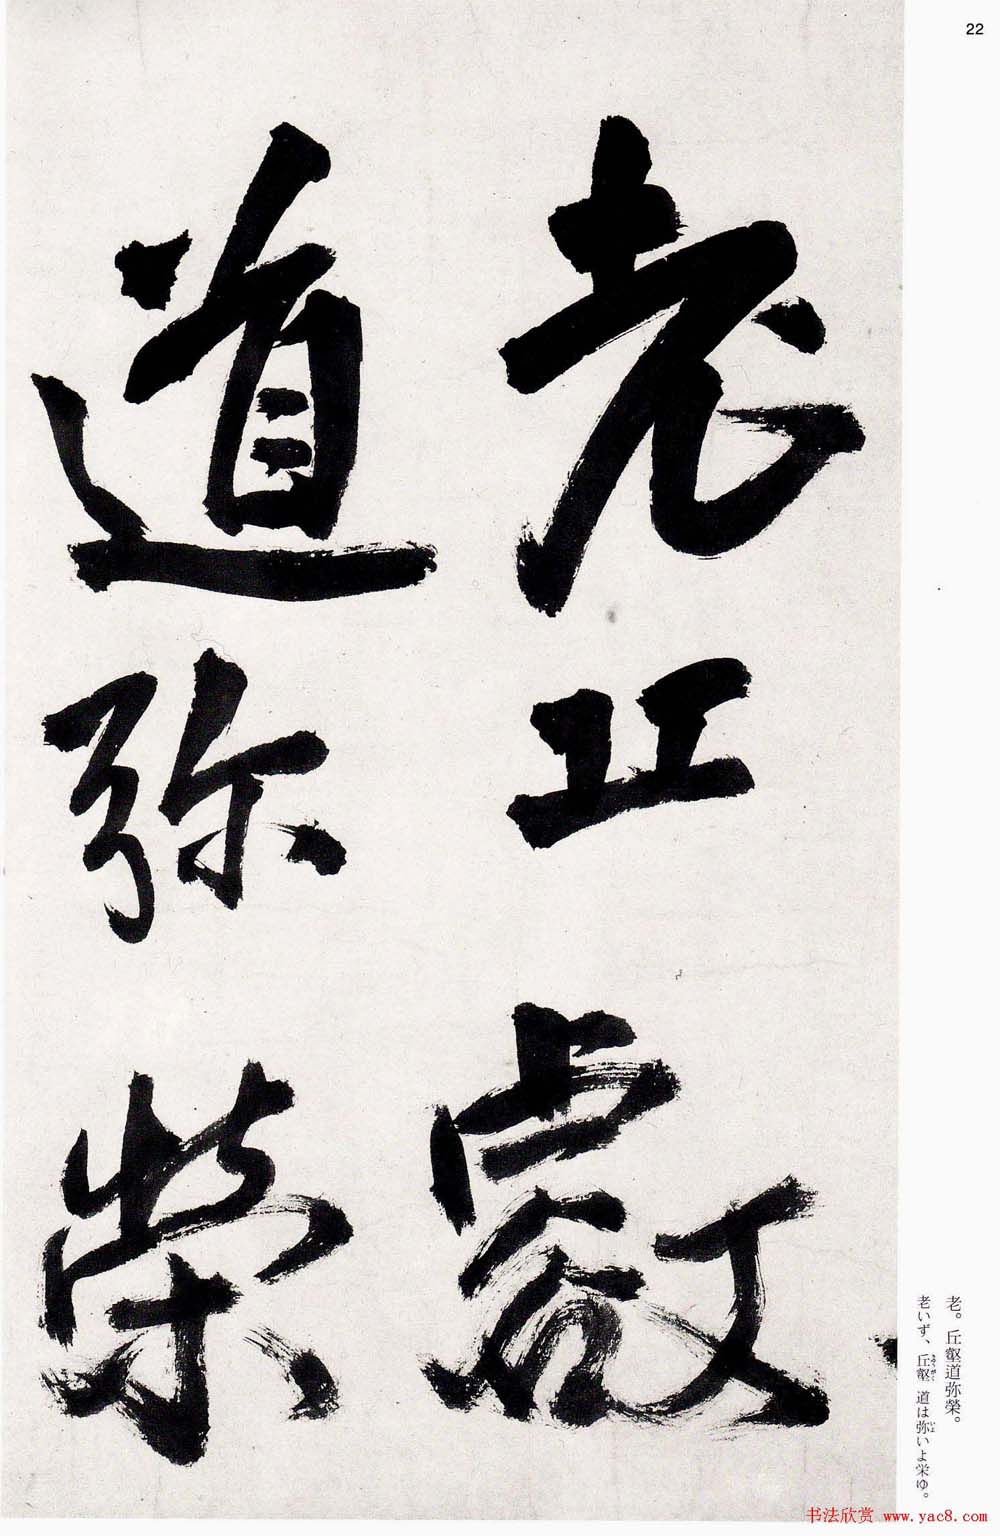 22
老丘壑
道弥榮
老。丘壑道弥榮。
老いず、丘壑道は弥いよ栄ゆ。
书法欣赏 www.yac8.com